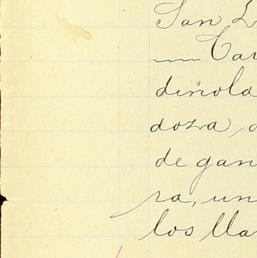 San L
— Car
dinola
doza, 
de gan
ra, un
los lla